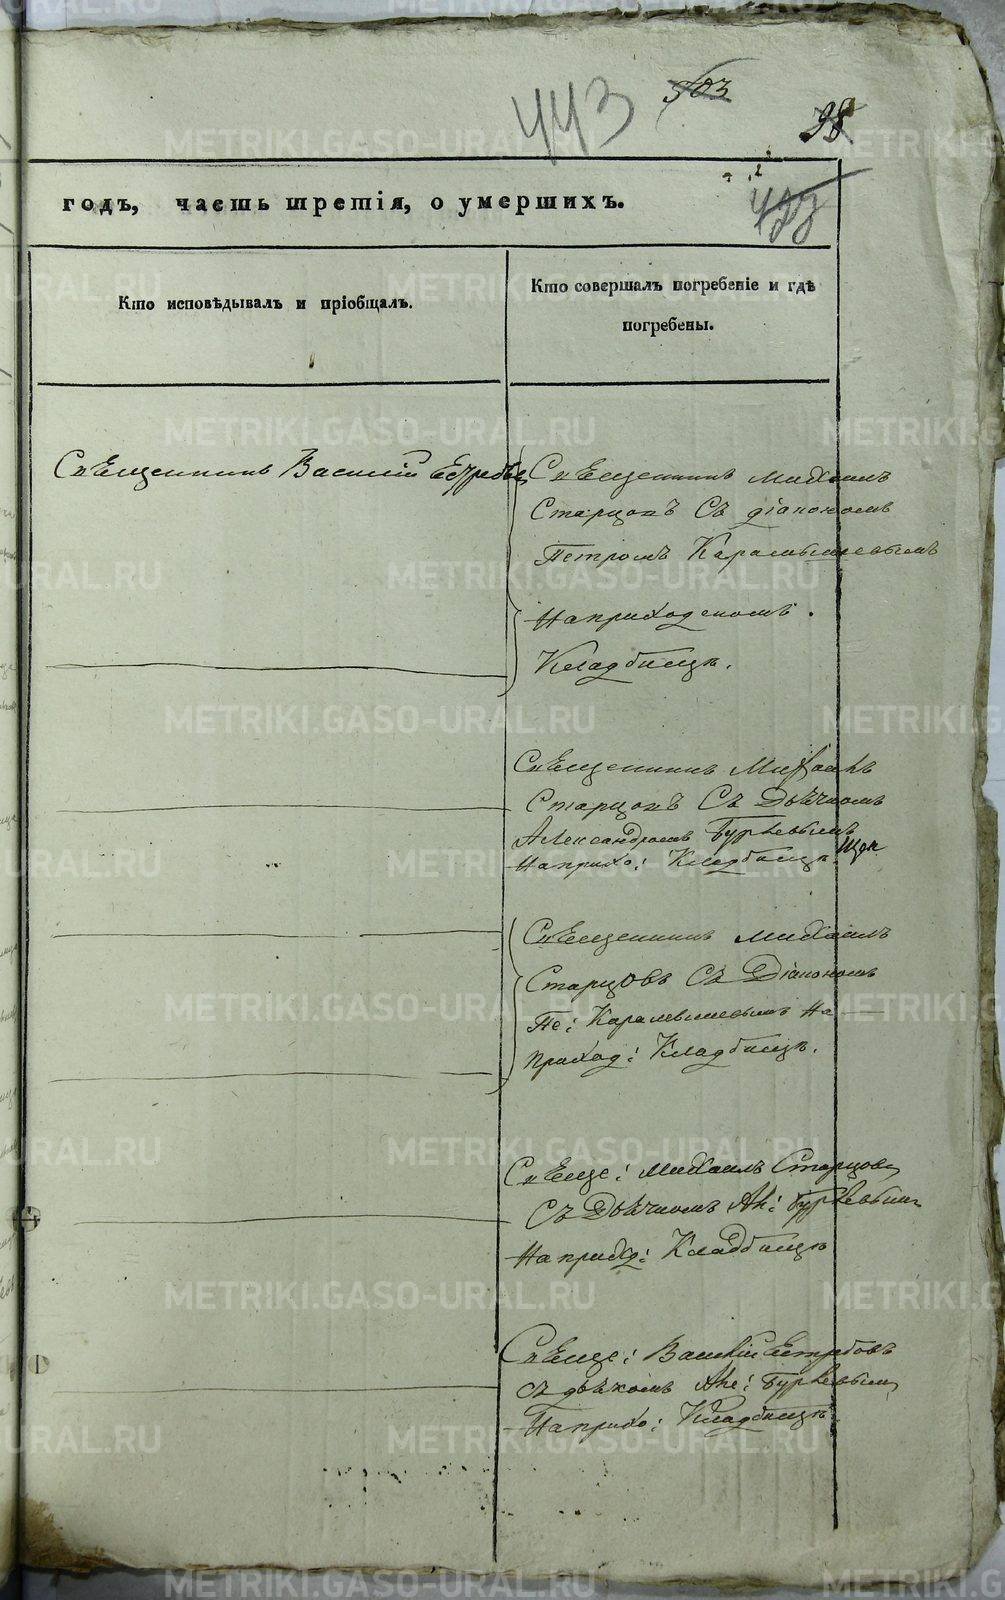 443
503
98
годъ, часть третія, о умершихъ.
Кто исповѣдывалъ и пріобщалъ.
Кто совершалъ погребеніе и гдѣ
погребены.
Священникъ Василій
Священникъ Михаилъ
Старцовъ Съ діакономъ
Петромъ Карамышевымъ
На приходскомъ
Кладбищѣ.
Священникъ Михаилъ
Старцовъ Съ Дьячкомъ
Александромъ
На прихо: Кладбищѣ.
Священникъ Михаилъ
Старцовъ Съ Діакономъ
Пе: Карамышевымъ На
приход: Кладбищѣ.
Свяще: Михаилъ Старцовъ
Съ Дьячкомъ Ал:
На прихд: Кладбищѣ
Свяще: Василій
съ дьячкомъ Але:
На прихо: Кладбищѣ.
METRIKI.GASO-URAL.RU